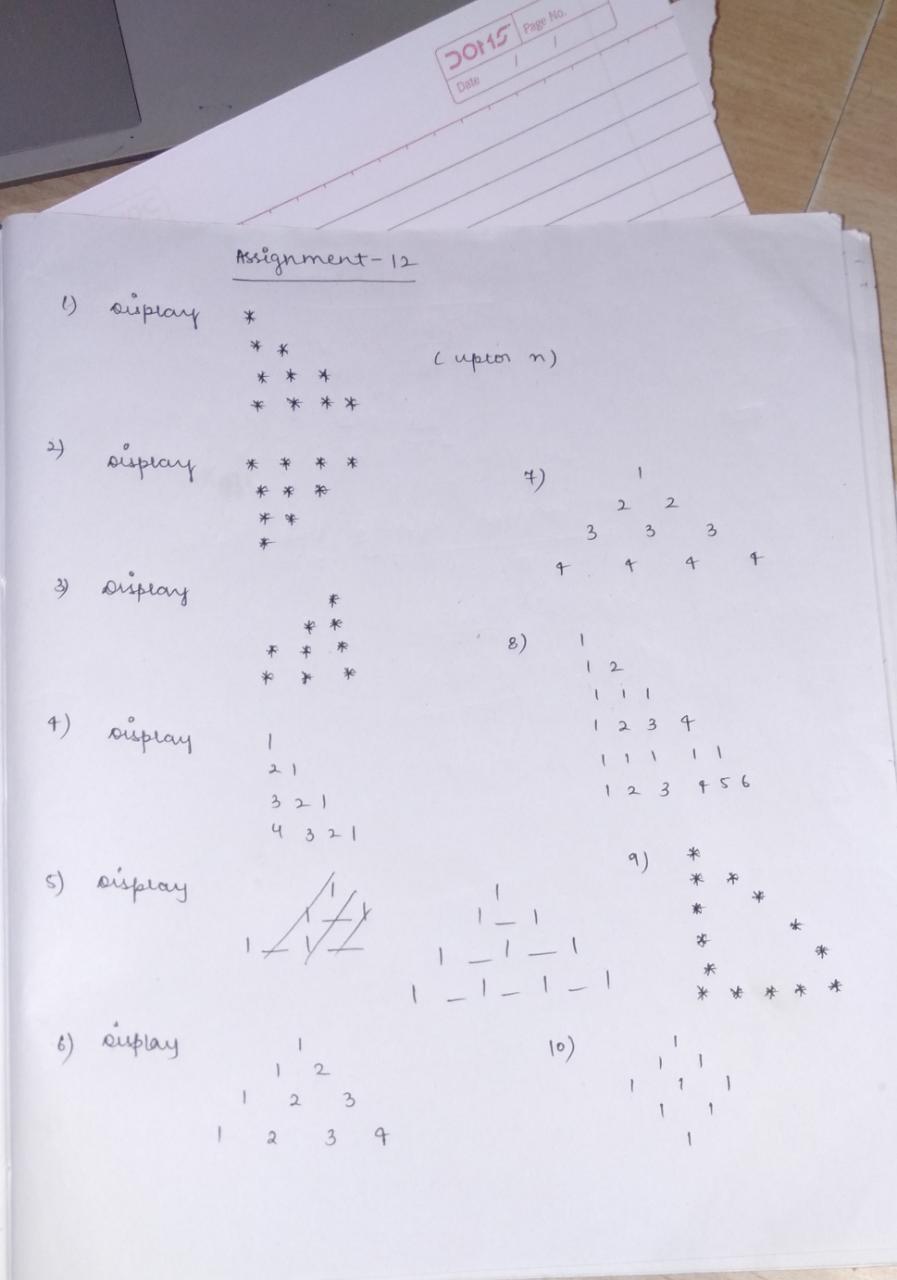 DOMS Page No.
Date / /
Assignment - 12
1) Display *
* *
* * *
* * * *
(upto n)
2) Display * * * *
* * *
* *
*
3) Display *
* *
* * *
* * *
4) Display 1
2 1
3 2 1
4 3 2 1
5) Display
1
1 _ 1
1 _ 1 _ 1
1 _ 1 _ 1 _ 1
6) Display 1
1 2
1 2 3
1 2 3 4
7) 1
2 2
3 3 3
4 4 4 4
8) 1
1 2
1 1 1
1 2 3 4
1 1 1 1 1
1 2 3 4 5 6
9) *
* *
*
*
*
*
*
*
*
* * * * *
10) 1
1 1
1 1 1
1 1
1